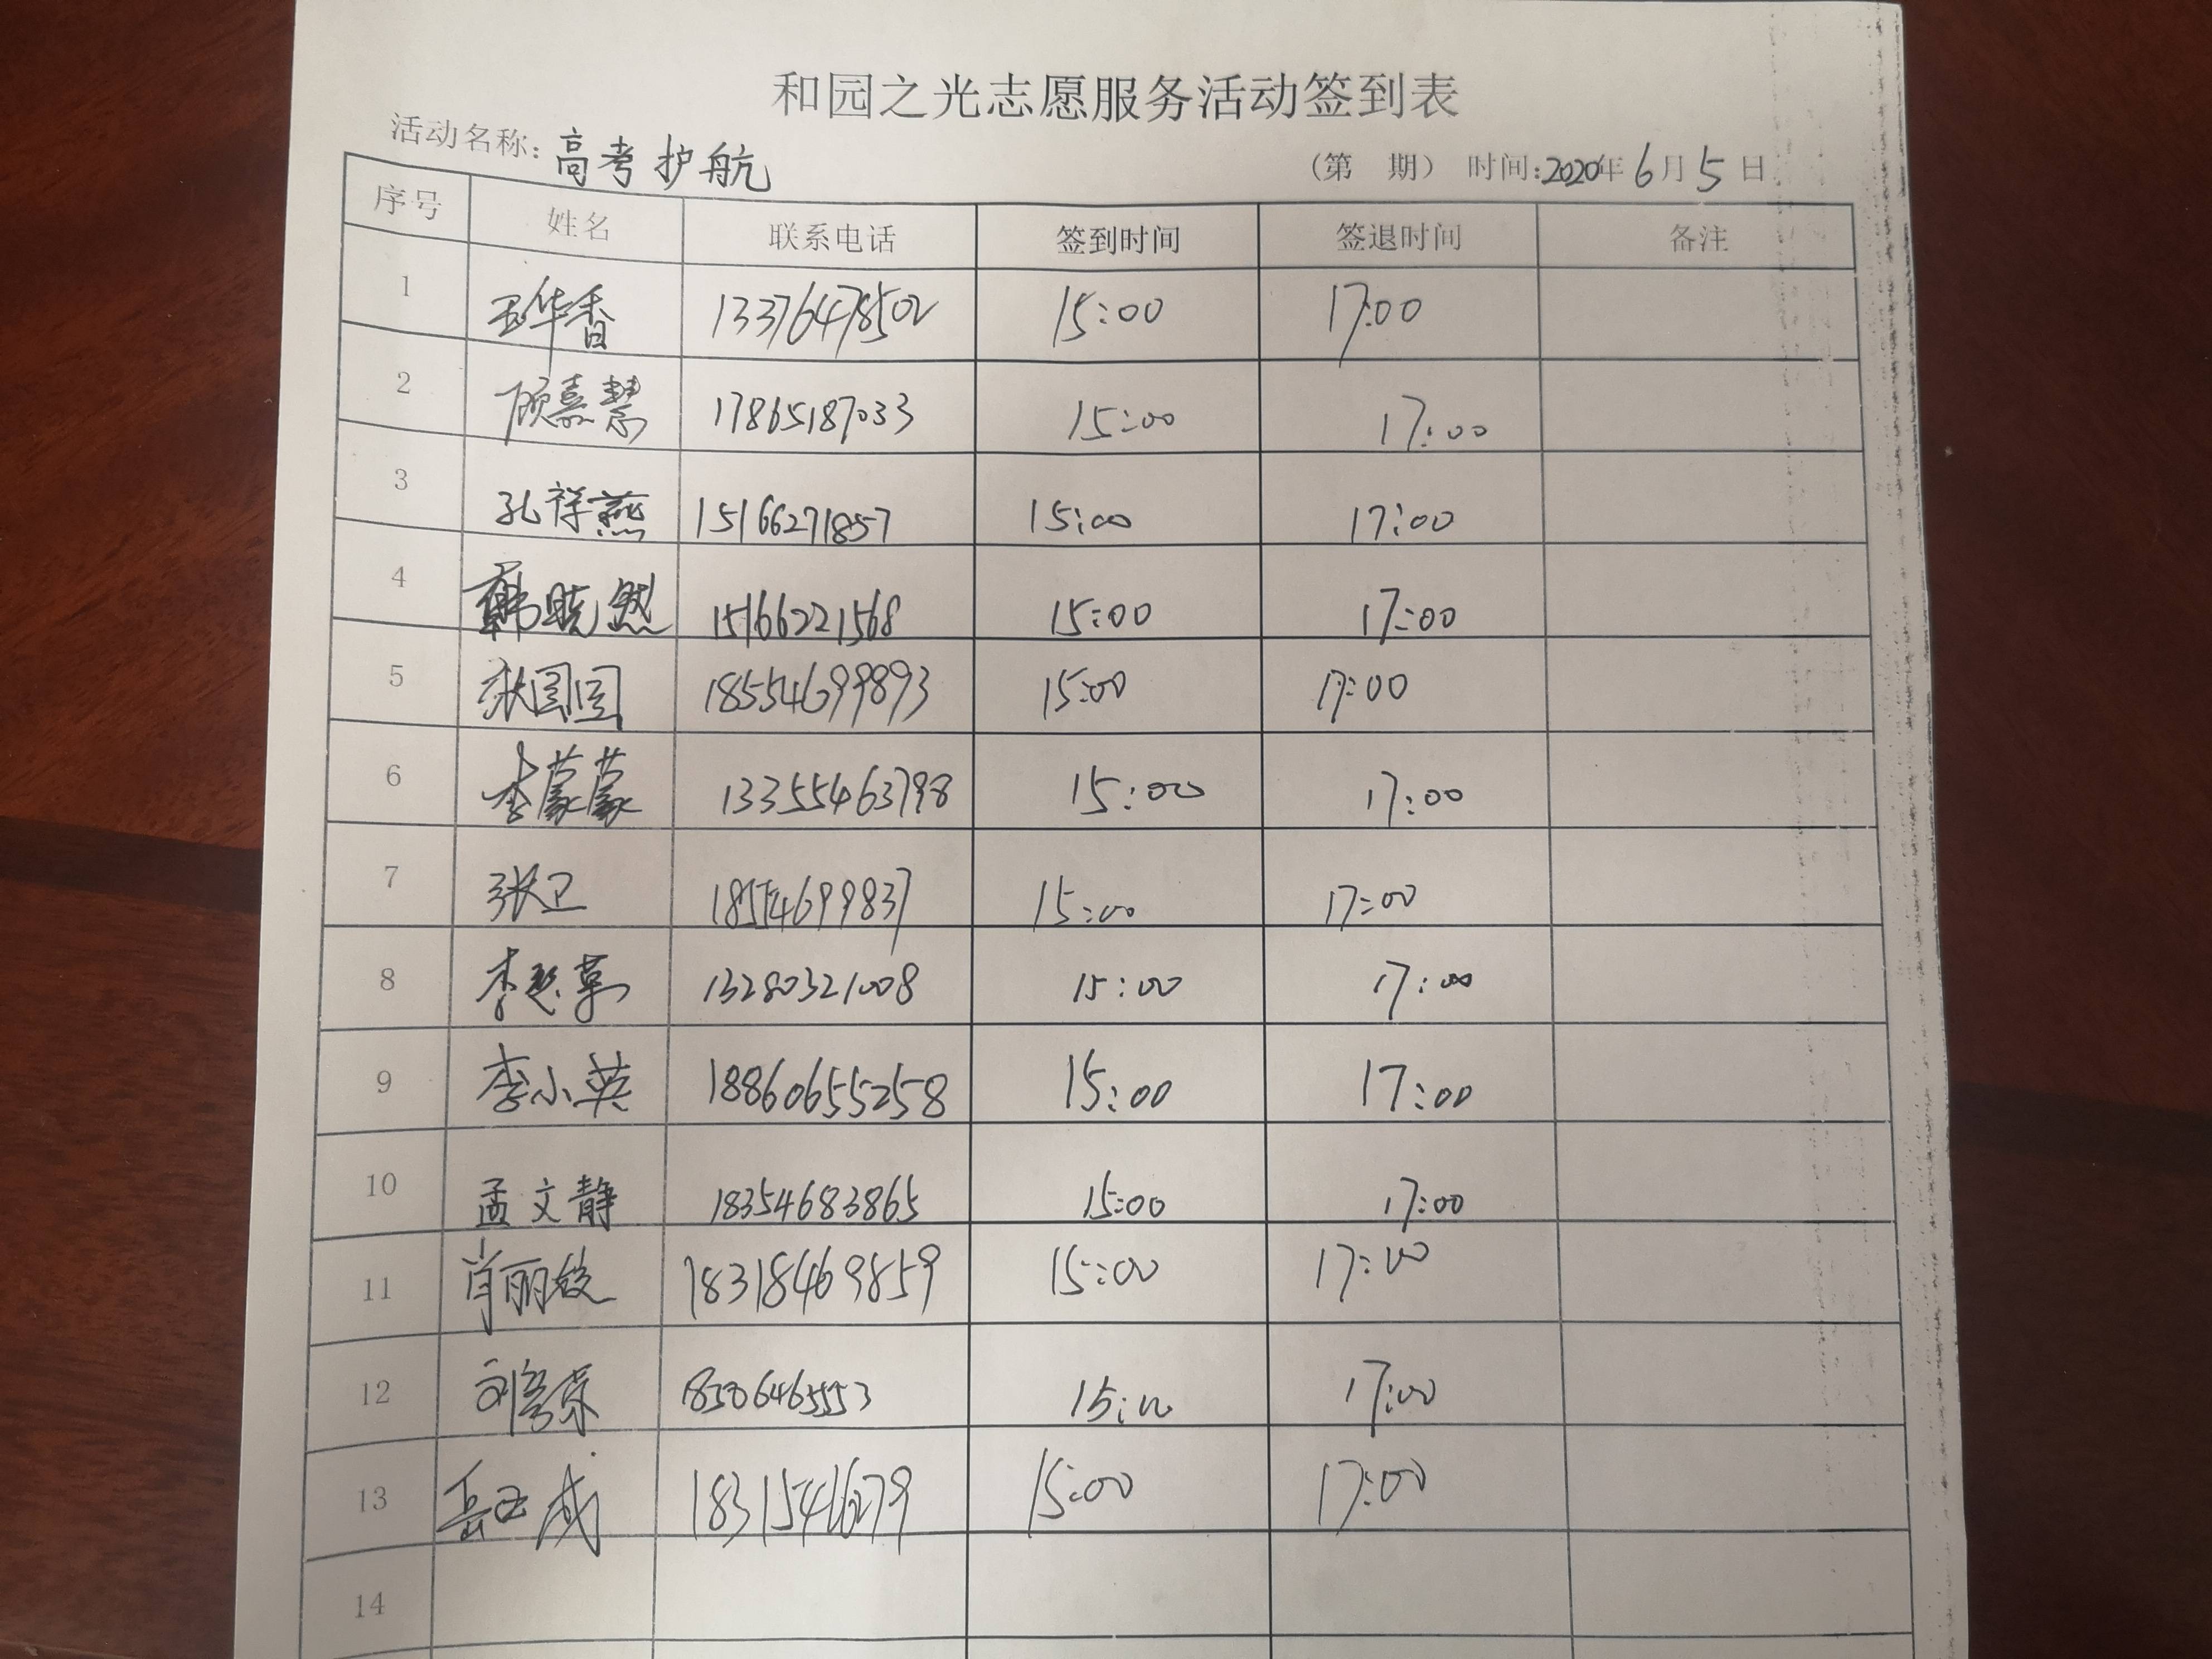 和园之光志愿服务活动签到表
活动名称：高考护航 （第 期） 时间：2020年6月5日
序号 姓名 联系电话 签到时间 签退时间 备注
1 王华香 13376478502 15:00 17:00
2 顾嘉慧 17865187033 15:00 17:00
3 孔祥燕 15166271857 15:00 17:00
4 韩晓然 15166221568 15:00 17:00
5 张圆圆 18554699893 15:00 17:00
6 李蒙蒙 13355463798 15:00 17:00
7 张卫 18554699837 15:00 17:00
8 李 13280321008 15:00 17:00
9 李小英 18860655258 15:00 17:00
10 孟文静 18354683865 15:00 17:00
11 肖丽 18318469859 15:00 17:00
12 刘 18506465553 15:00 17:00
13 岳 成 18315461679 15:00 17:00
14